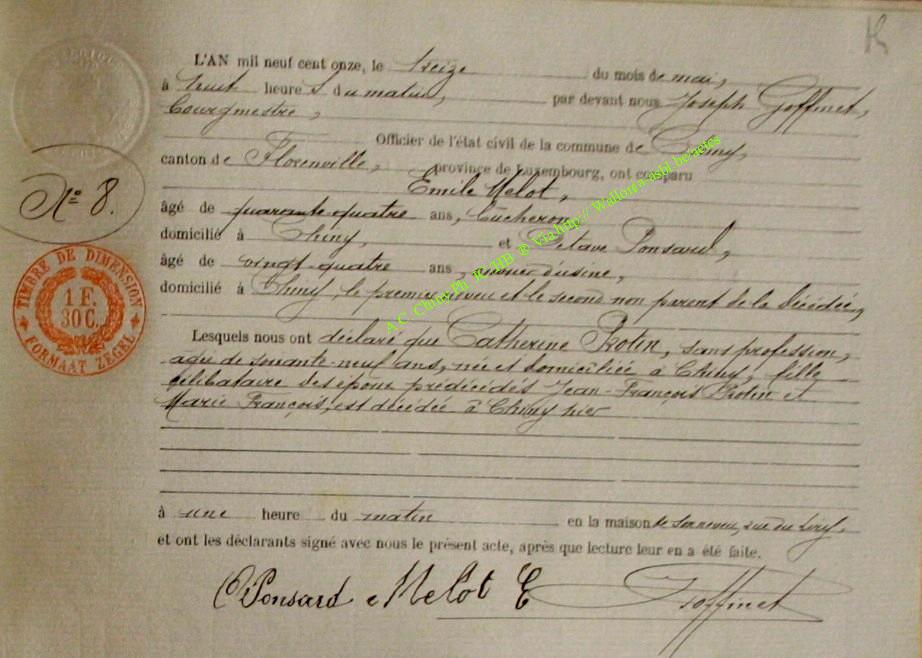 L'AN mil neuf cent onze, le treize du mois de mai,
à huit heures du matin, par devant nous Joseph Goffinet,
bourgmestre,
Officier de l'état civil de la commune de Chiny,
canton de Florenville, province de Luxembourg, ont comparu
Emile Melot,
âgé de quarante-quatre ans, bûcheron,
domicilié à Chiny, et Octave Ponsard,
âgé de vingt-quatre ans, ouvrier d'usine,
domicilié à Chiny, le premier neveu et le second non parent de la décédée,
Lesquels nous ont déclaré que Catherine Protin, sans profession,
âgée de soixante-neuf ans, née et domiciliée à Chiny, fille
célibataire des époux prédécédés Jean-François Protin et
Marie François, est décédée à Chiny hier
à une heure du matin en la maison de son neveu, rue du
et ont les déclarants signé avec nous le présent acte, après que lecture leur en a été faite.
O Ponsard Melot E Goffinet
No 8.
TIMBRE DE DIMENSION
1 F.
30 C.
FORMAAT ZEGEL
A.C. Chiny Ph. via http:// Wallonia asbl be/actes